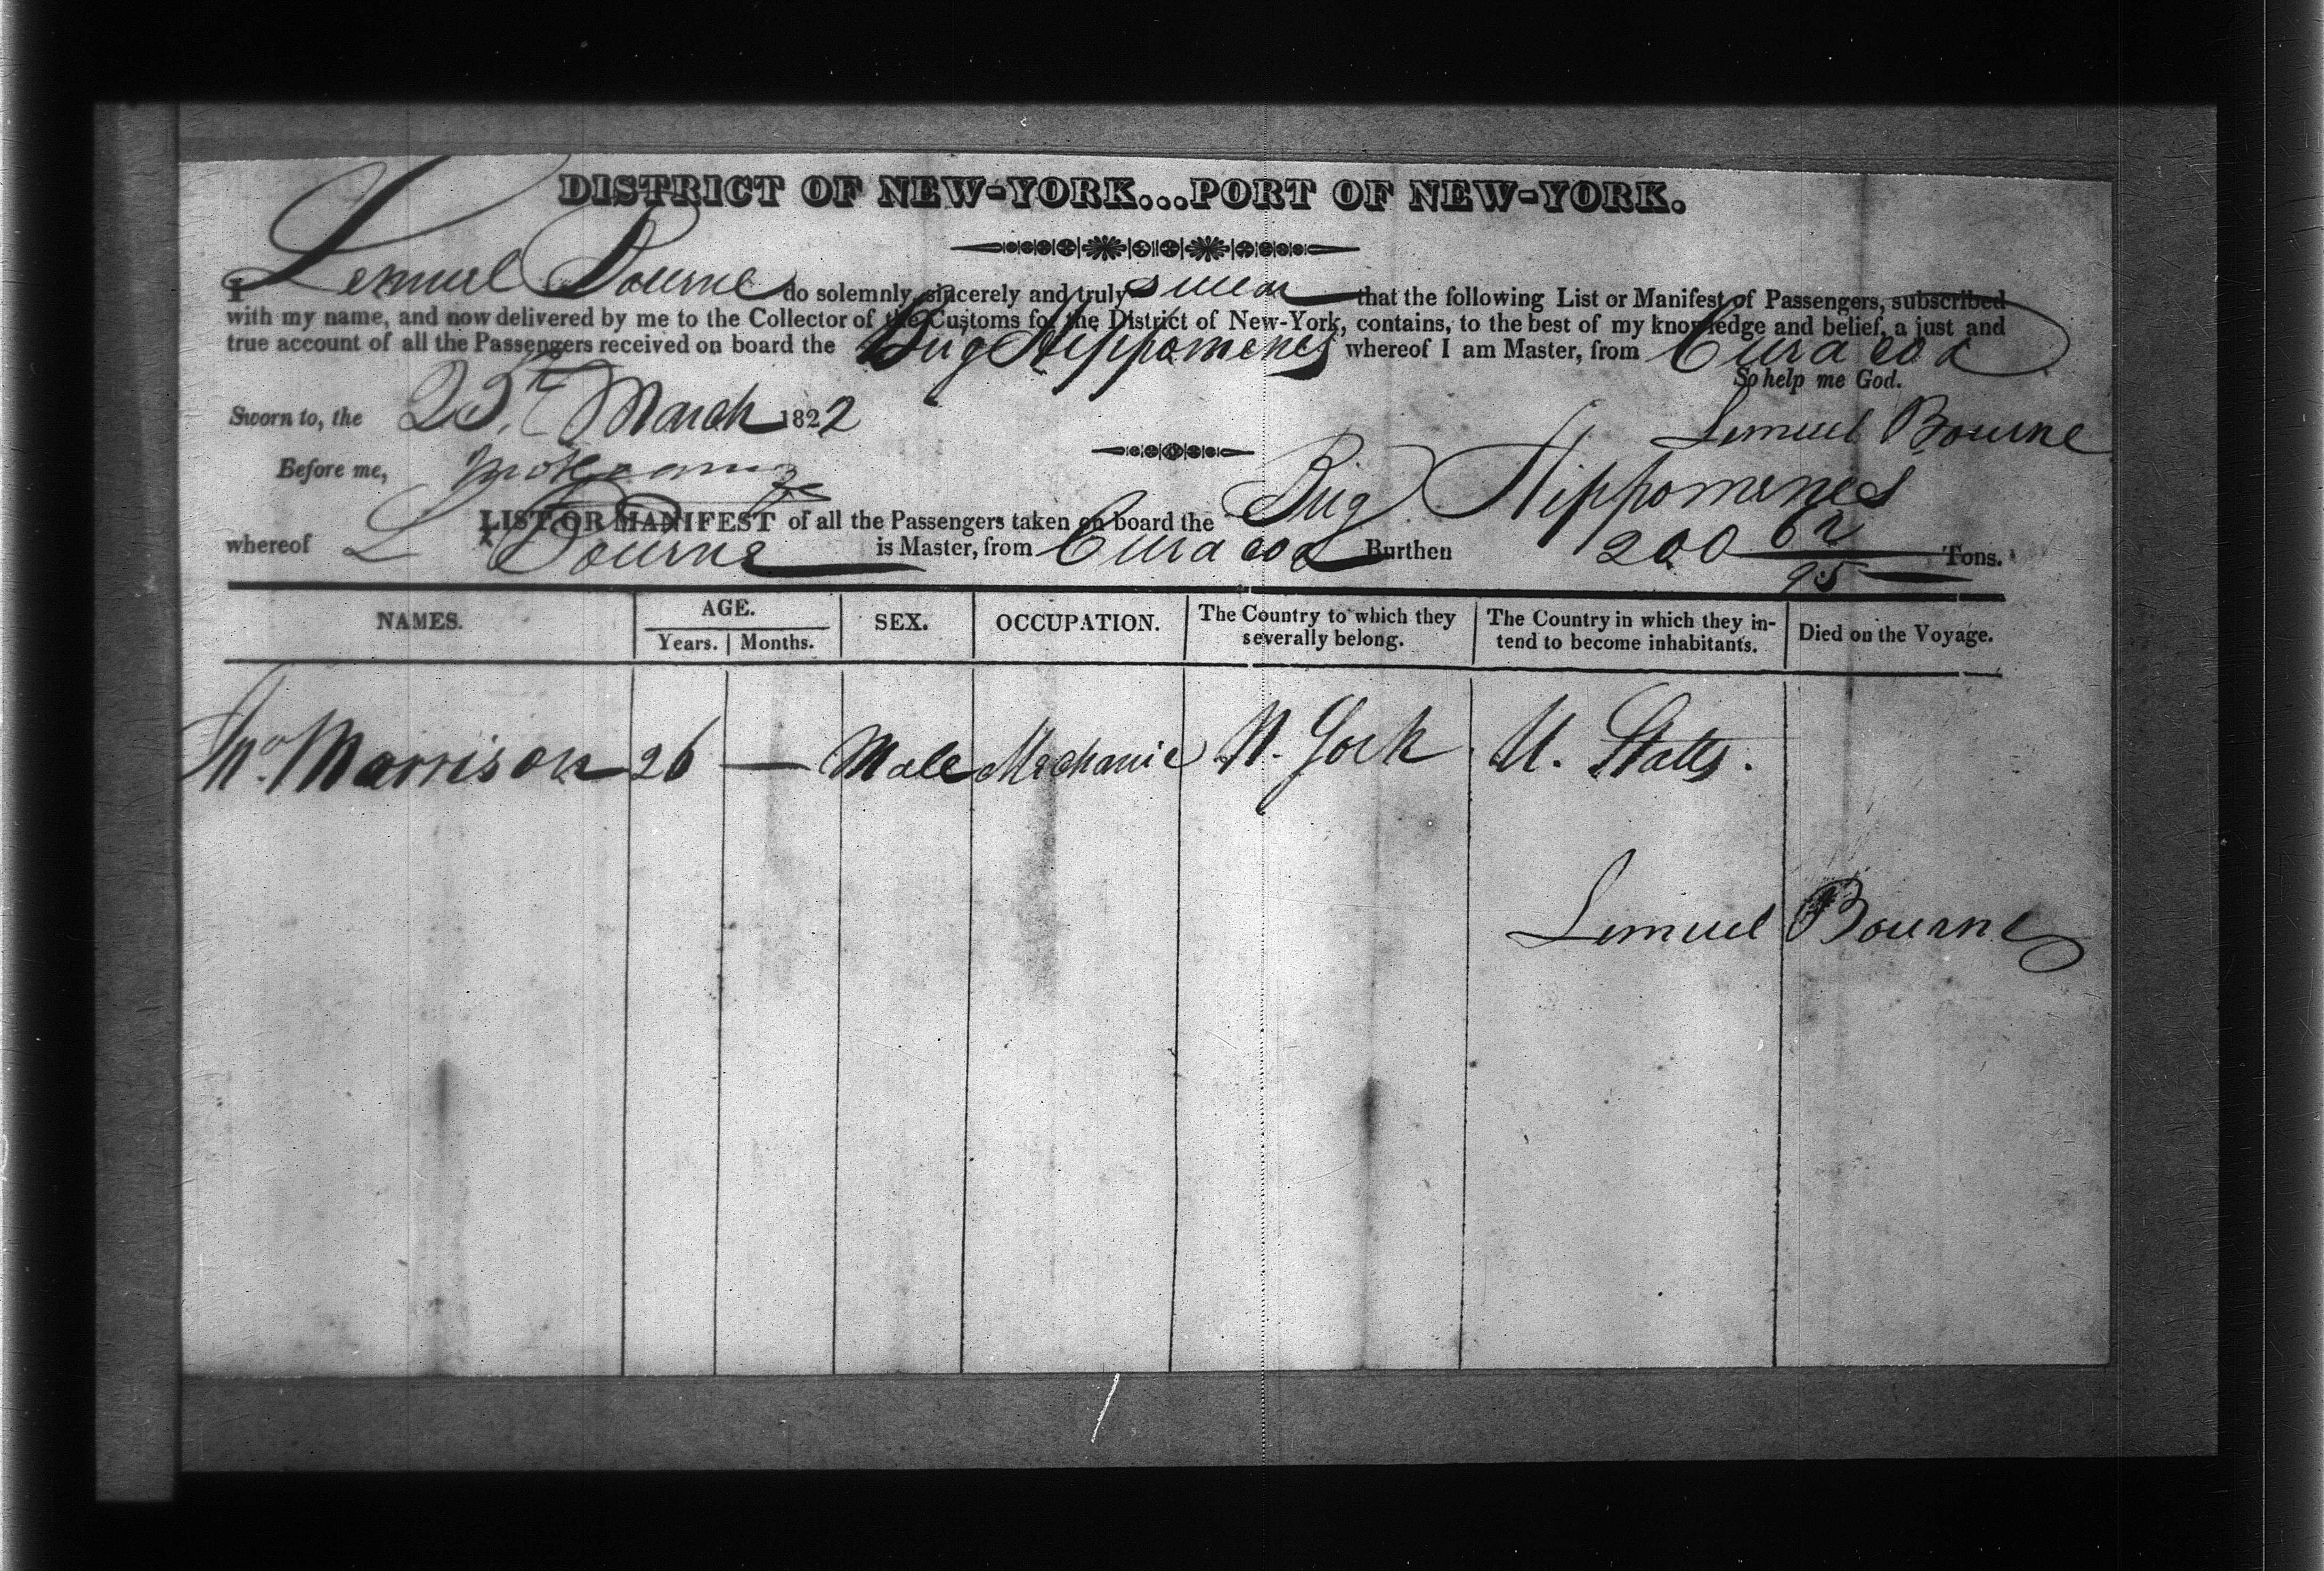 DISTRICT OF NEW-YORK...PORT OF NEW-YORK.
I Lemuel Bourne do solemnly, sincerely and truly swear that the following List or Manifest of Passengers, subscribed
with my name, and now delivered by me to the Collector of the Customs for the District of New-York, contains, to the best of my knowledge and belief, a just and
true account of all the Passengers received on board the Brig Hippomenes whereof I am Master, from Curacoa
So help me God.
Sworn to, the 25th March 1822
Lemuel Bourne
Before me,
LIST OR MANIFEST of all the Passengers taken on board the Brig Hippomenes
whereof L Bourne is Master, from Curacoa Burthen 200 62/95 Tons.
NAMES. AGE. SEX. OCCUPATION. The Country to which they severally belong. The Country in which they in-tend to become inhabitants. Died on the Voyage.
Years. Months.
Jno. Morrison 26 — Male Mechanic N. York U. States.
Lemuel Bourne